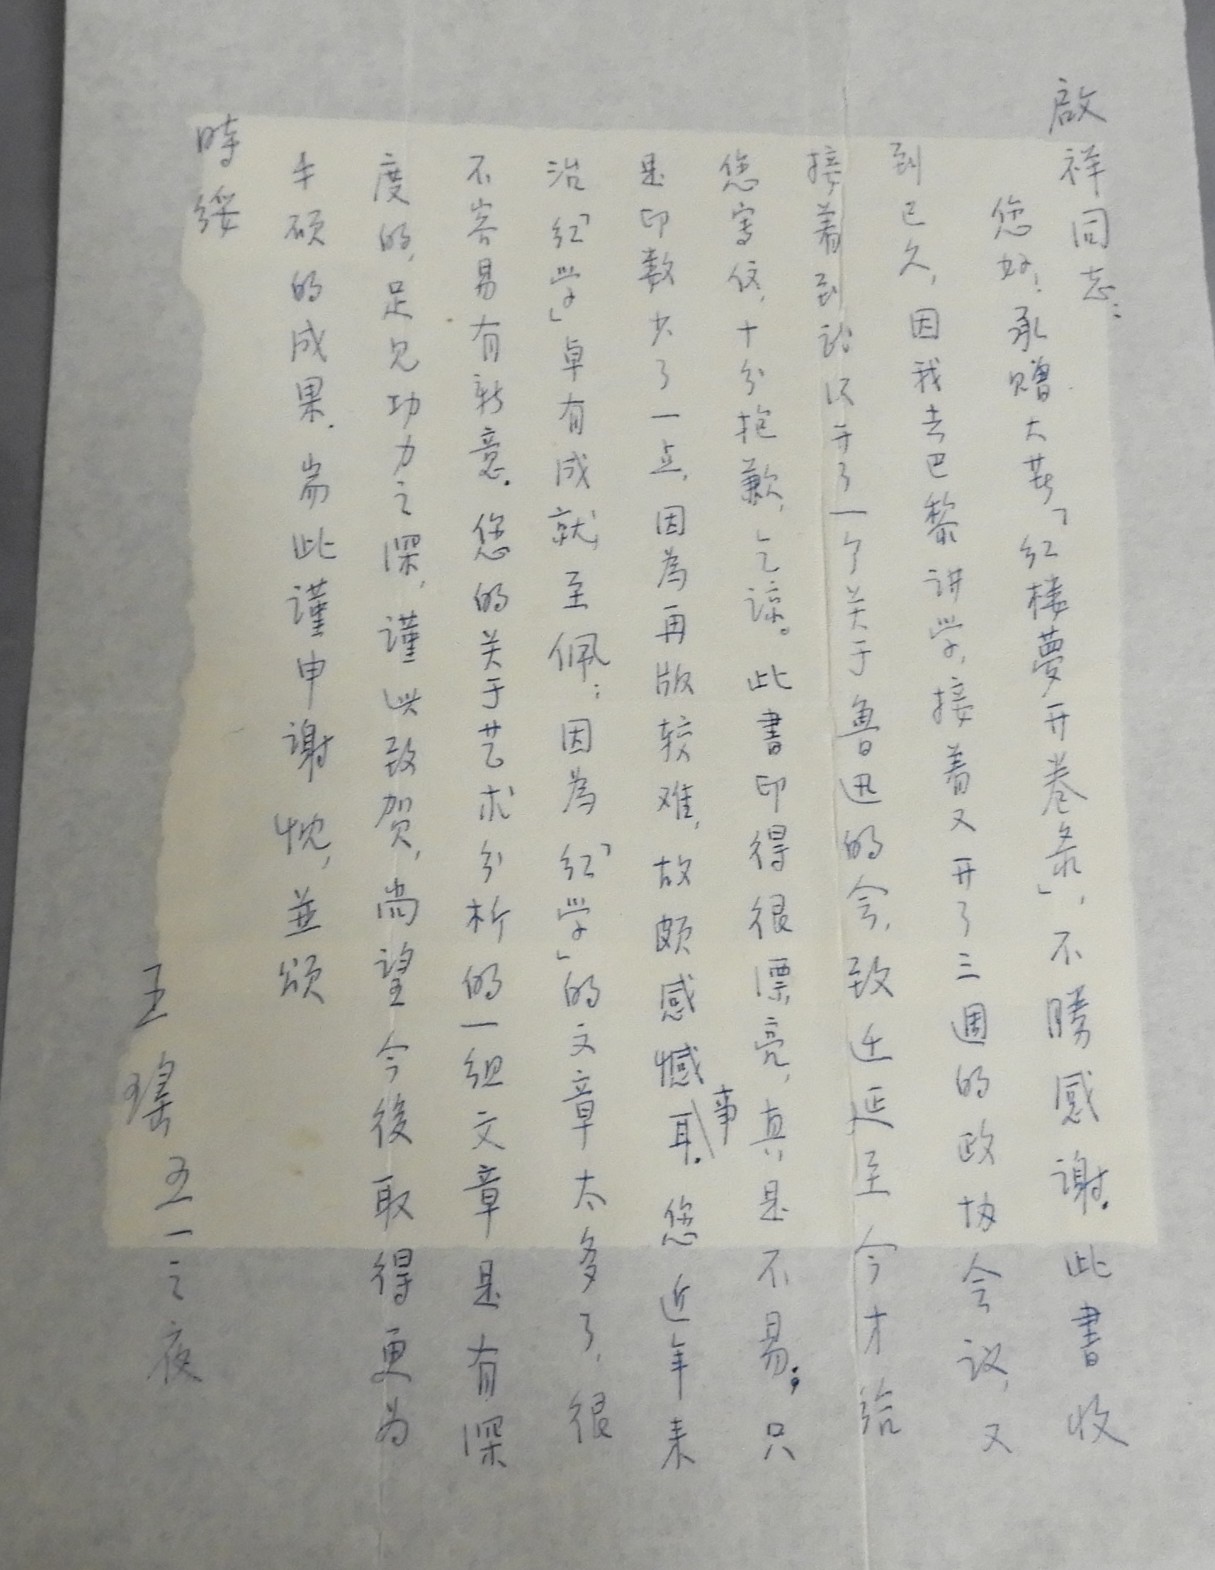 啟祥同志：
您好！承赠大著「红楼夢开卷录」，不勝感谢。此書收
到已久，因我去巴黎讲学，接着又开了三週的政协会议，又
接着到绍兴开了一个关于魯迅的会，致迁延至今才给
您写信，十分抱歉，乞谅。此書印得很漂亮，真是不易。只
是印数少了一点，因為再版较难，故頗感憾事耳。您近年来
治「红学」卓有成就，至佩；因為「红学」的文章太多了，很
不容易有新意。您的关于艺术分析的一组文章是有深
度的，足见功力之深，谨此致贺，尚望今後取得更为
丰硕的成果。耑此谨申谢忱，並頌
時綏
王瑶 五一之夜